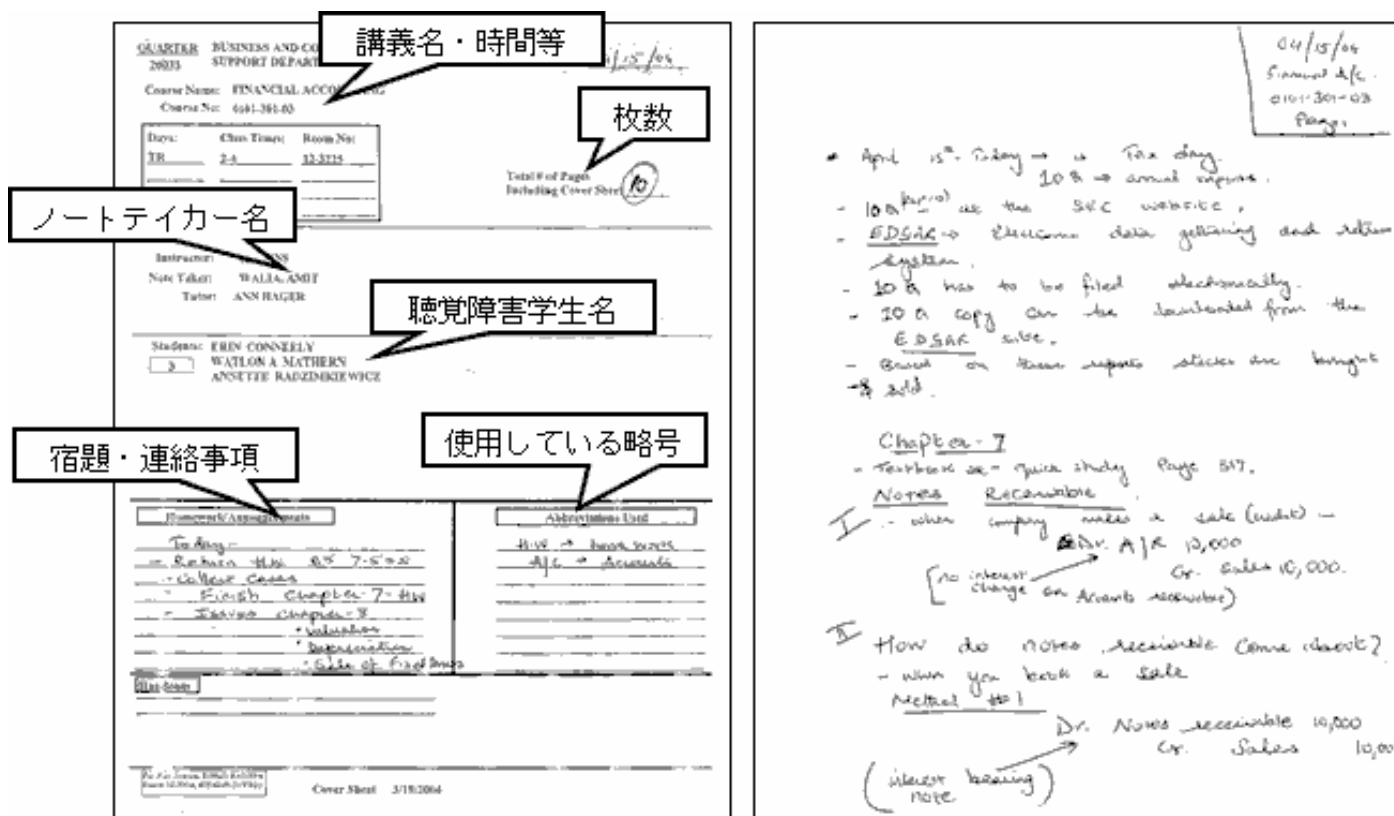 講義名・時間等
QUARTER BUSINESS AND
20033 SUPPORT
4/15/04
Course Name: FINANCIAL ACCOUNTING
Course No: 0101-301-03
枚数
Days: Class Times: Room No:
TR 2-4 12-3225
Total # of Pages
Including Cover Sheet 10
ノートテイカー名
Instructor:
Note Taker: WALIA, AMIT
Tutor: ANN HAGER
聴覚障害学生名
Students: ERIN CONNEELY
3 WATLON A MATHERN
ANNETTE RADZINKIEWICZ
宿題・連絡事項
使用している略号
Homework/Assignments
Abbreviations Used
Today -
- Return HW
H.W →
A/C → Accounts
- Collect Cases
- Finish Chapter-7-HW
- Issues Chapter-8
• Valuation
• Depreciation
• Sale of Fixed
Cover Sheet 3/15/2004
04/15/04
Financial A/C
0101-301-03
Page 1
• April 15th - Today → is Tax day.
→ annual reports.
at the SEC website.
- EDGAR → Electronic data gathering and
system.
- 10 Q has to be filed electronically.
- 10 Q copy can be downloaded from the
EDGAR site.
- Based on these reports stocks are bought
& sold.
Chapter - 7
- Textbook or - Quick study Page 317.
Notes Receivable
I - when company makes a sale (credit) -
Dr. A/R 10,000
Cr. Sales 10,000.
[no interest
charge on Accounts receivable)
II How do notes receivable come about?
- When you book a sale
Method #1
Dr. Notes receivable 10,000
Cr. Sales
(interest bearing)
note